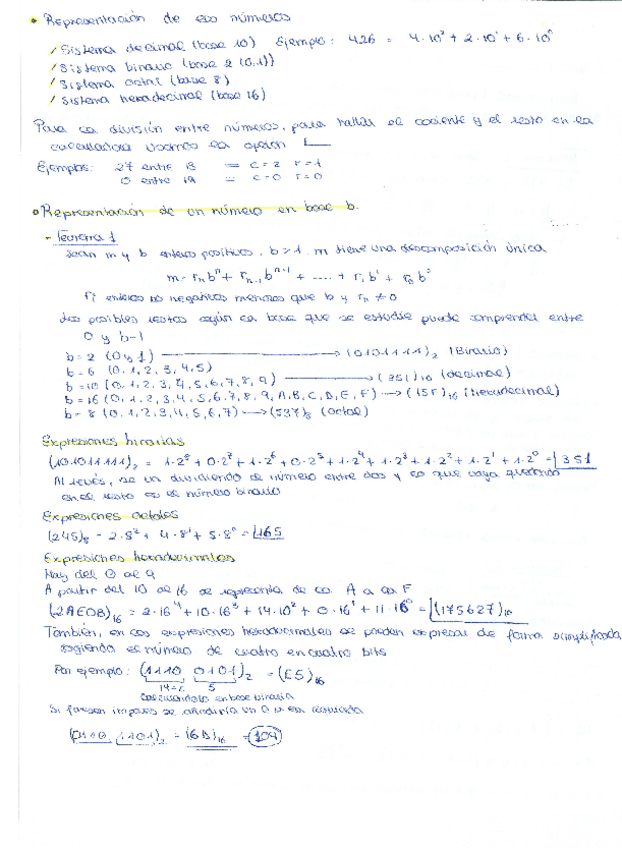 • Representación de los números
/ Sistema decimal (base 10) Ejemplo: 426 = 4·10² + 2·10¹ + 6·10⁰
/ Sistema binario (base 2 (0,1))
/ Sistema octal (base 8)
/ Sistema hexadecimal (base 16)
Para la división entre números, para hallar el cociente y el resto en la
calculadora usamos la opción
Ejemplos: 27 entre 13 = C=2 r=1
0 entre 19 = C=0 r=0
• Representación de un número en base b.
- Teorema 1
Sean m y b enteros positivos. b>1. m tiene una descomposición única
m = rₙbⁿ + rₙ₋₁bⁿ⁻¹ + .... + r₁b¹ + r₀b⁰
rᵢ enteros no negativos menores que b y rₙ ≠ 0
Los posibles restos según la base que se estudie puede comprender entre
0 y b-1
b=2 (0 y 1) → (010111111)₂ (Binario)
b=6 (0,1,2,3,4,5)
b=10 (0,1,2,3,4,5,6,7,8,9) → (351)₁₀ (decimal)
b=16 (0,1,2,3,4,5,6,7,8,9,A,B,C,D,E,F) → (15F)₁₆ (Hexadecimal)
b=8 (0,1,2,3,4,5,6,7) → (537)₈ (octal)
Expresiones binarias
(101011111)₂ = 1·2⁸ + 0·2⁷ + 1·2⁶ + 0·2⁵ + 1·2⁴ + 1·2³ + 1·2² + 1·2¹ + 1·2⁰ = 351
Al revés, se va dividiendo el número entre dos y lo que vaya quedando
en el resto es el número binario
Expresiones octales
(245)₈ = 2·8² + 4·8¹ + 5·8⁰ = 165
Expresiones hexadecimales
Hay del 0 al 9
A partir del 10 al 16 se representa de la A a la F
(2AE0B)₁₆ = 2·16⁴ + 10·16³ + 14·10² + 0·16¹ + 11·16⁰ = (175627)₁₀
También, en las expresiones hexadecimales se pueden expresar de forma simplificada
cogiendo el número de cuatro en cuatro bits
Por ejemplo: (1110 0101)₂ = (E5)₁₆
14=E 5
Calculándolo en base binaria
Si fuesen impares se añadiría un 0 a la izquierda
(0110, 1101)₂ = (6D)₁₆ = 109